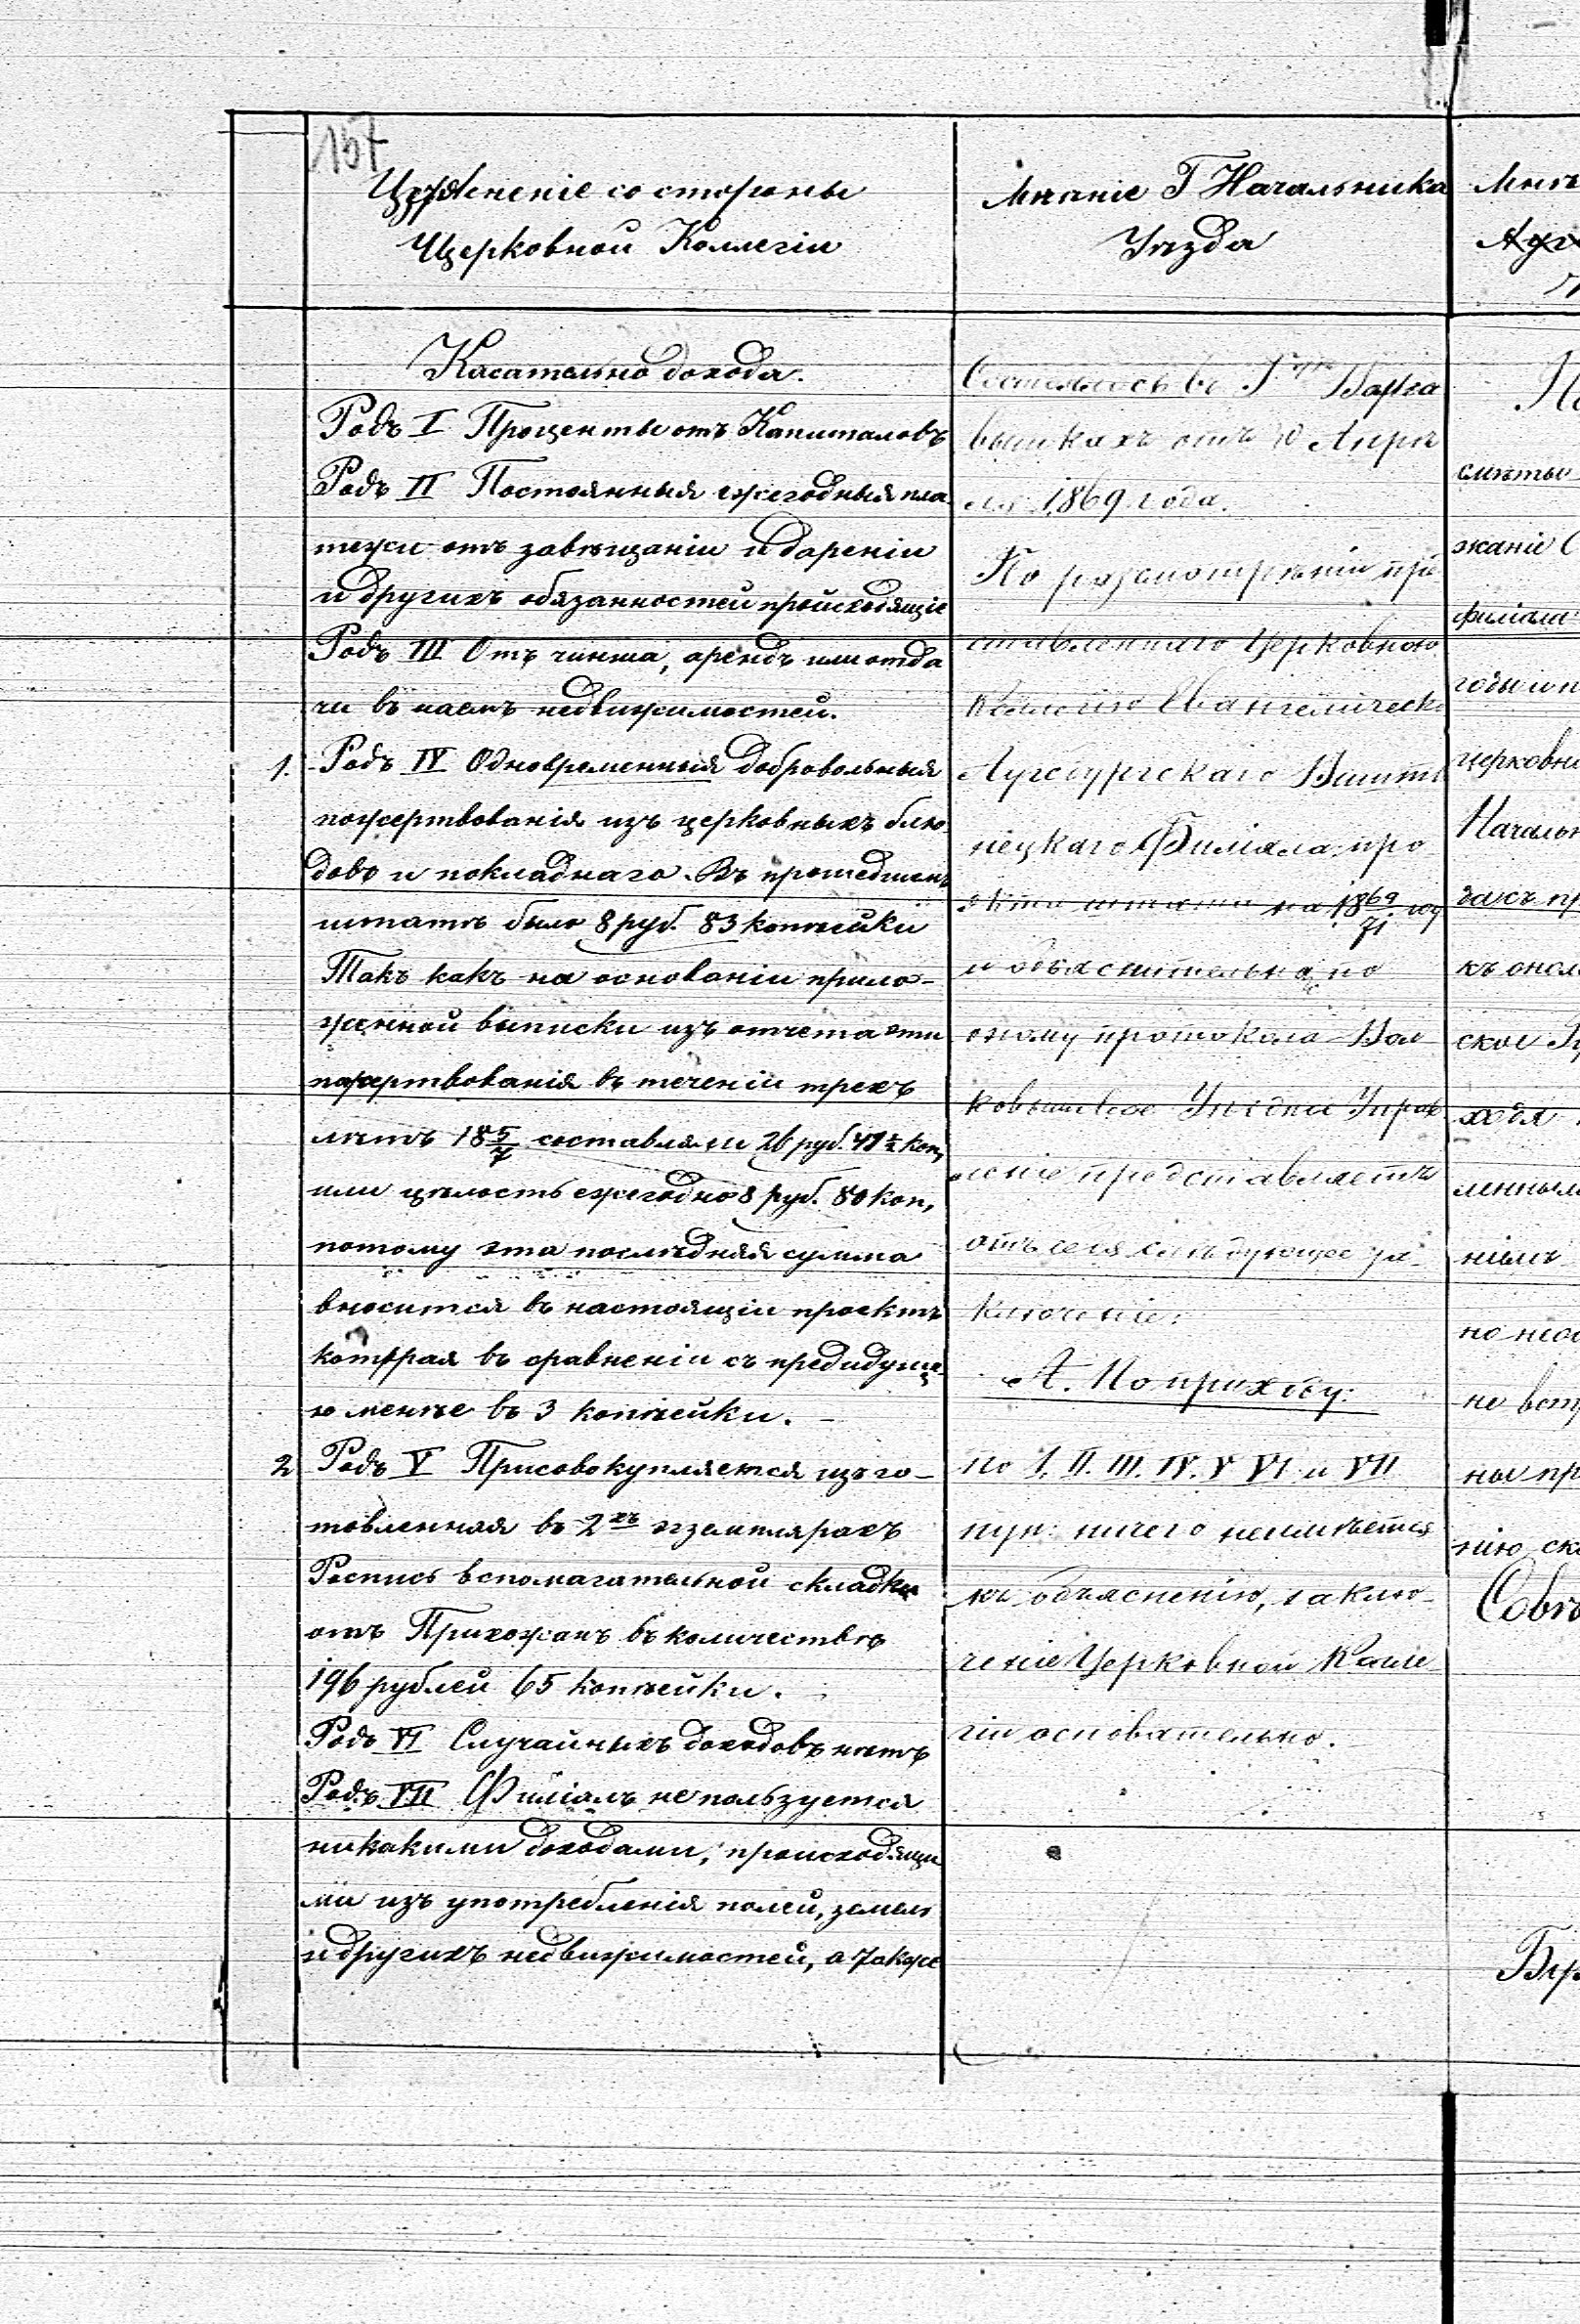 157
со стороны
Церковной Коллегіи
Касательно дохода.
Родъ I Проценты отъ Капиталовъ
Родъ II Постоянныя ежегодныя пла
тежи отъ завѣщаніи и дареніи
и другихъ обязанностей происходящіе
Родъ III Отъ чинша, арендъ или отда
чи въ наемъ недвижимостей.
1. Родъ IV Одновременныя добровольныя
пожертвованія изъ церковныхъ блю
довъ и покладнаго. Въ прошедшемъ
штатѣ было 8 руб. 83 копѣйки
Такъ какъ на основаніи прило-
женной выписки изъ отчета эти
пожертвованія въ теченіи трехъ
лѣтъ 18 5/7 составляли 26 руб. 41½ коп,
или цѣлость ежегодно 8 руб. 80 коп,
потому эта послѣдняя сумма
вносится въ настоящіи проектъ
которая въ сравненіи съ предидуще
ю менѣе въ 3 копѣйки. —
2 Родъ V Присовокупляется изго-
товленная въ 2хъ экземплярахъ
Роспись вспомагательной складки
отъ Прихожанъ въ количествѣ
196 рублей 65 копѣйки.
Родъ VI Случайныхъ доходовъ нѣтъ
Родъ VII Филіалъ не пользуется
никакими доходами, происходящи
ми изъ употребленія полей, земель
и другихъ недвижимостей, а также
Мнѣніе Г Начальника
Уѣзда
Состоялось въ
вышкахъ отъ Апрѣ
ля 1869 года.
По разсмотрѣніи пре
ставленнаго Церковною
Коллегіею Евангелическо
Аугсбургскаго Вишты
нецкаго Филіала про
экта штата на 1869/71 год
и объяснительна по
оному протокола Вол
ковышское Уѣздное Управ
леніе представляетъ
отъ себя слѣдующее за
ключеніе:
А. По приходу:
По I. II. III. IV. V VI и VII
пун: ничего неимѣется
къ объясненію, заклю-
ченіе Церковной Колле
гіи основательно.
Мнѣ
смѣты
жаніе С
филіала
годы и п
церковн
Начальн
часъ пр
къ оном
ское
ходя
ленным
ніемъ
но неос
не встр
ны пр
нію ск
Совѣ